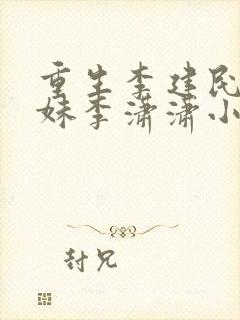 重生李建民
妹李潇潇小
封兄